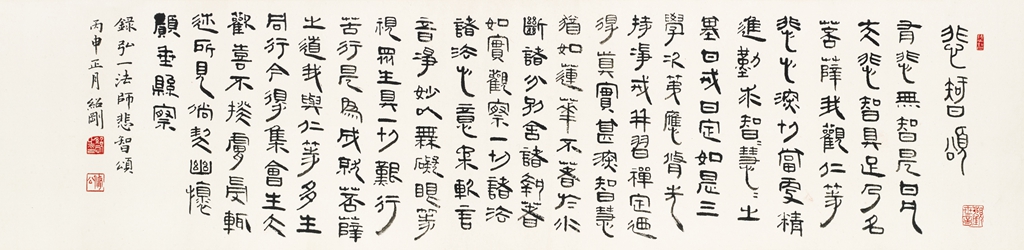 悲智頌
有悲無智是曰凡
夫悲智具足乃名
菩薩我觀仁等
悲心深切當更精
進勤求智慧=之
基曰戒曰定如是三
學次第應脩先
持淨戒并習禪定迺
得真實甚深智慧
猶如蓮華不著於水
斷諸分別舍諸執著
如實觀察一切諸法
諸法心意柔軟言
音淨妙以無礙眼等
視眾生具一切艱行
苦行是為成就菩薩
之道我與仁等多生
同行今得集會生大
歡喜不揆膚受輒
述所見倘契幽懷
願垂察
錄弘一法師悲智頌
丙申正月紹剛